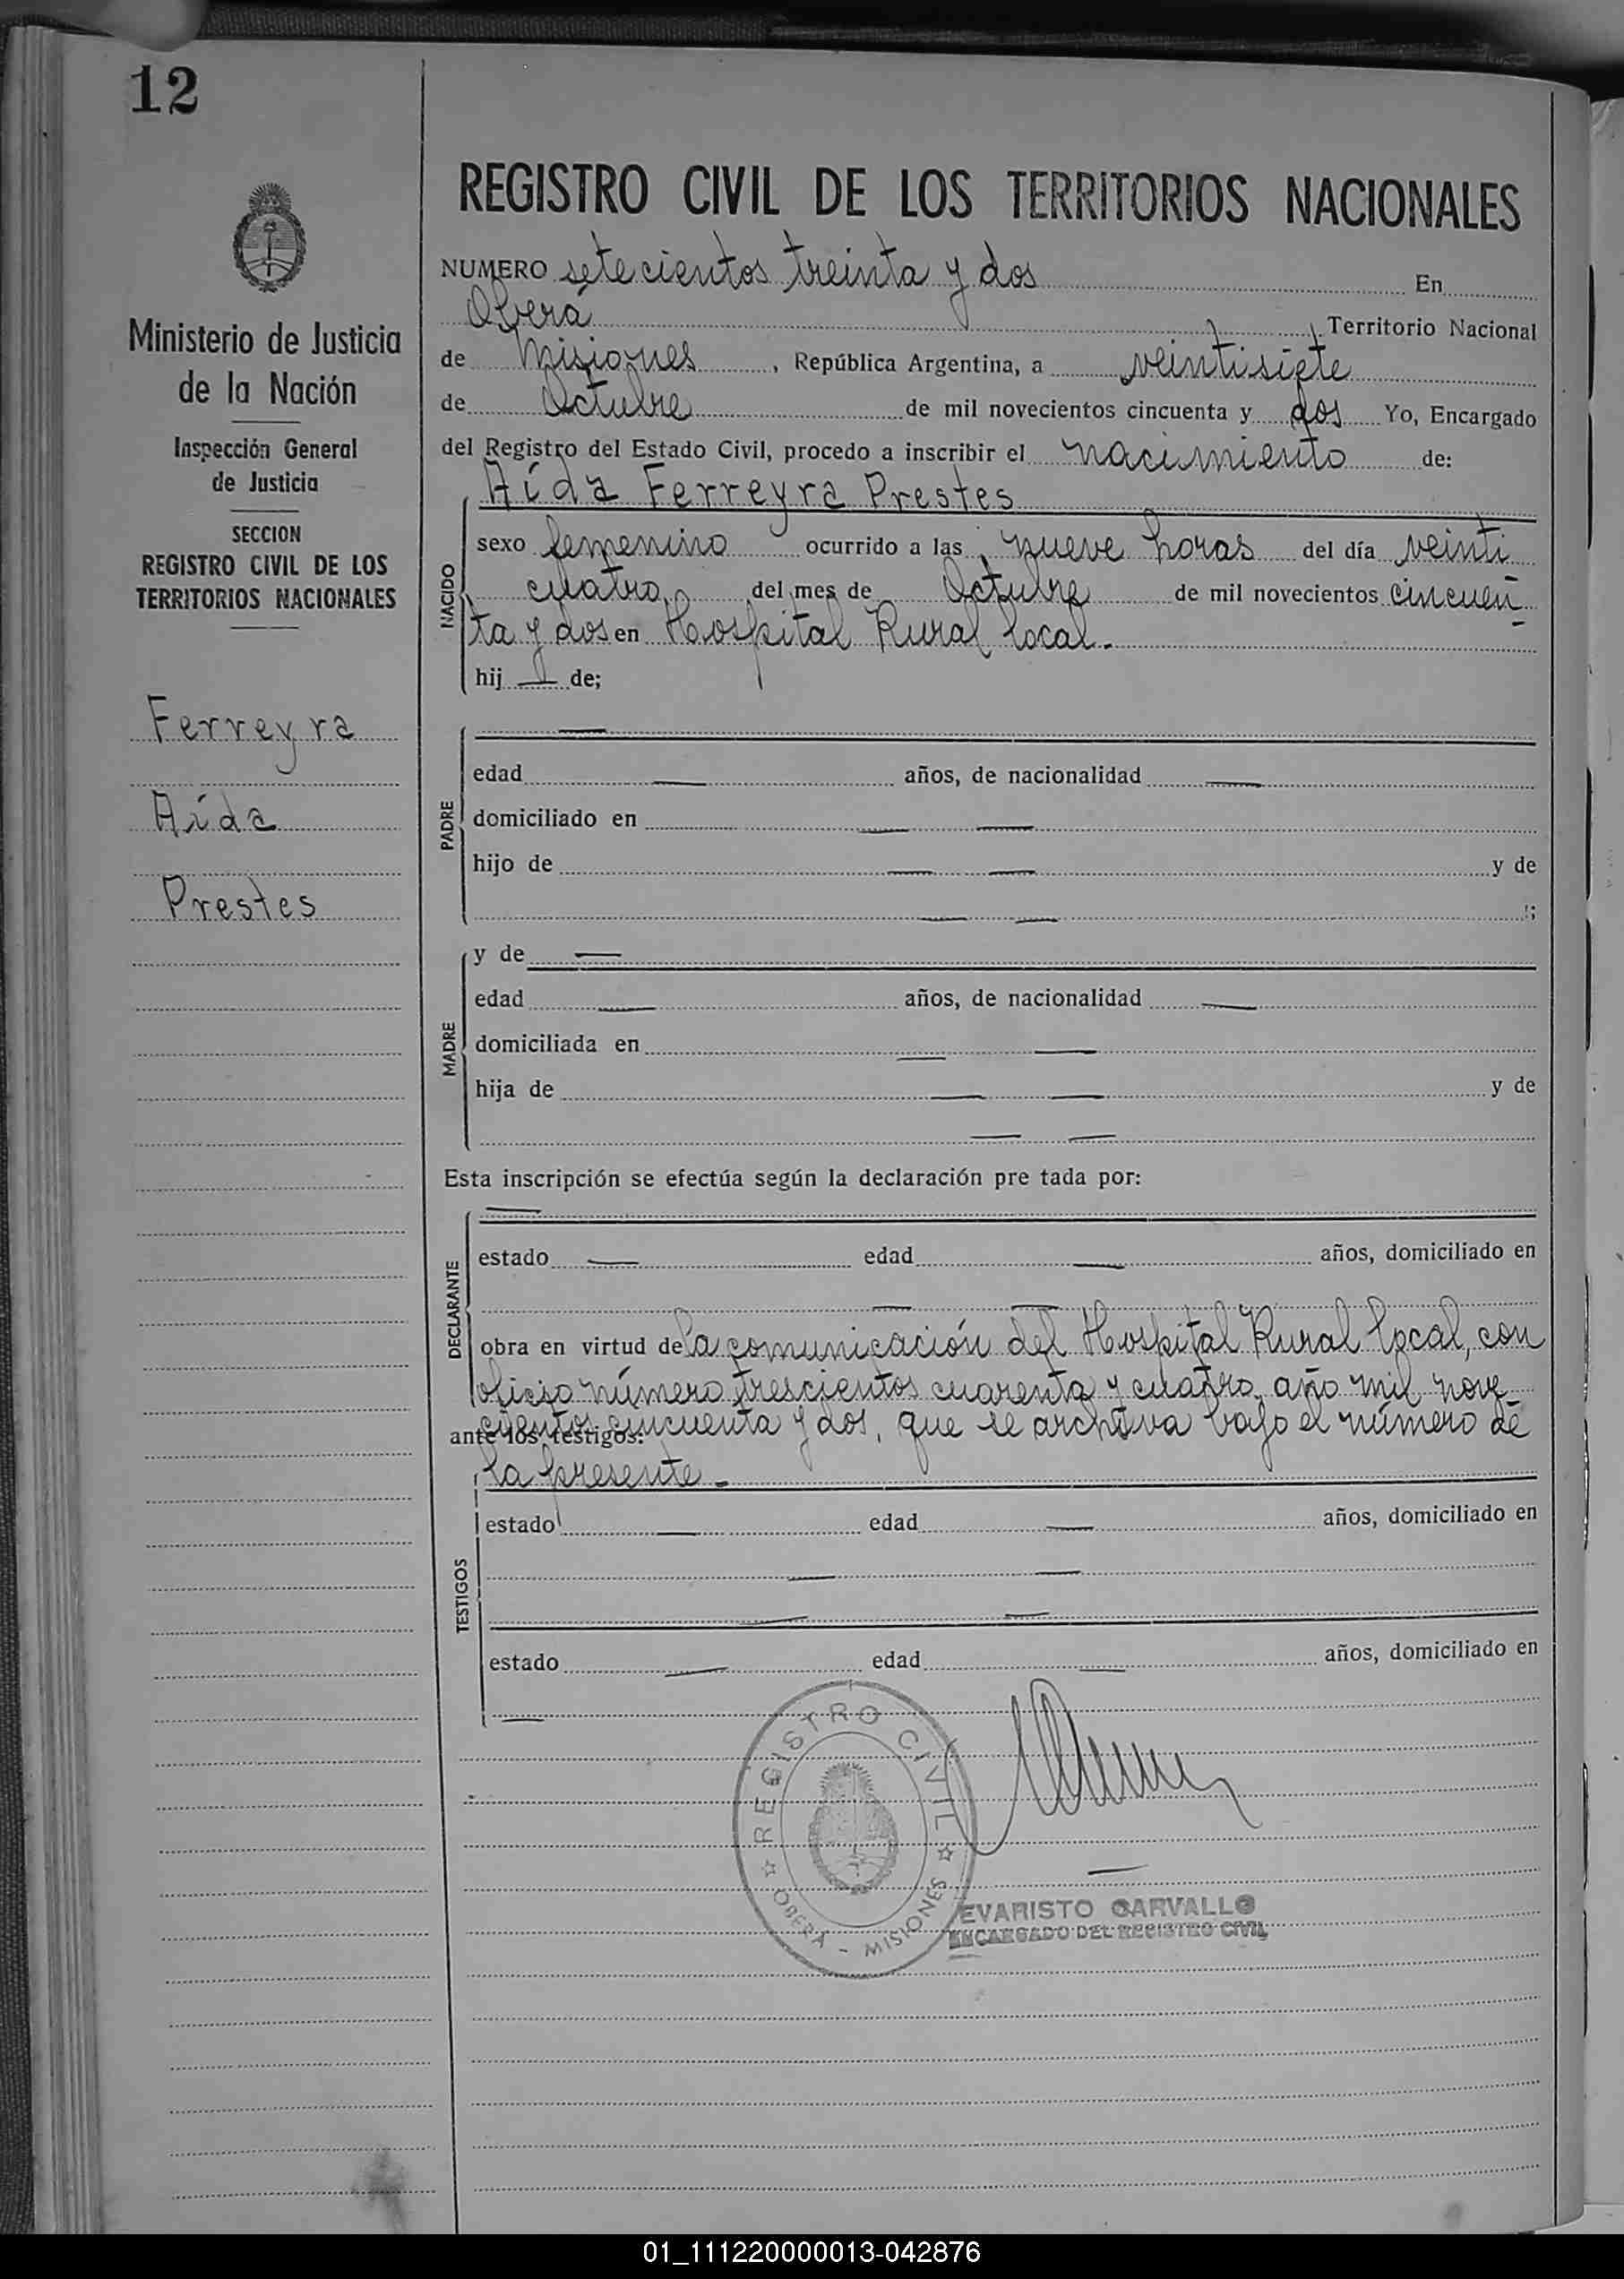 12
Ministerio de Justicia
de la Nación
Inspección General
de Justicia
SECCION
REGISTRO CIVIL DE LOS
TERRITORIOS NACIONALES
Ferreyra
Aída
Prestes
REGISTRO CIVIL DE LOS TERRITORIOS NACIONALES
NUMERO setecientos treinta y dos En
Oberá Territorio Nacional
de Misiones, República Argentina, a veintisiete
de Octubre de mil novecientos cincuenta y dos Yo, Encargado
del Registro del Estado Civil, procedo a inscribir el nacimiento de:
Aída Ferreyra Prestes
NACIDO
sexo femenino ocurrido a las nueve horas del día veinti
cuatro del mes de Octubre de mil novecientos cincuen
ta y dos en Hospital Rural local.-
hij — de;
PADRE
—
edad — años, de nacionalidad —
domiciliado en — —
hijo de — — y de
— — ;
MADRE
y de —
edad — años, de nacionalidad —
domiciliada en — —
hija de — — y de
— —
Esta inscripción se efectúa según la declaración pre tada por:
DECLARANTE
—
estado — edad — años, domiciliado en
— —
obra en virtud de la comunicación del Hospital Rural local, con
oficio número trescientos cuarenta y cuatro, año mil nove
cientos cincuenta y dos, que se archiva bajo el número de
ante los testigos:
la presente.-
TESTIGOS
estado — edad — años, domiciliado en
— —
— —
estado — edad — años, domiciliado en
—
REGISTRO CIVIL
OBERA - MISIONES
EVARISTO CARVALLO
ENCARGADO DEL REGISTRO CIVIL
01_111220000013-042876